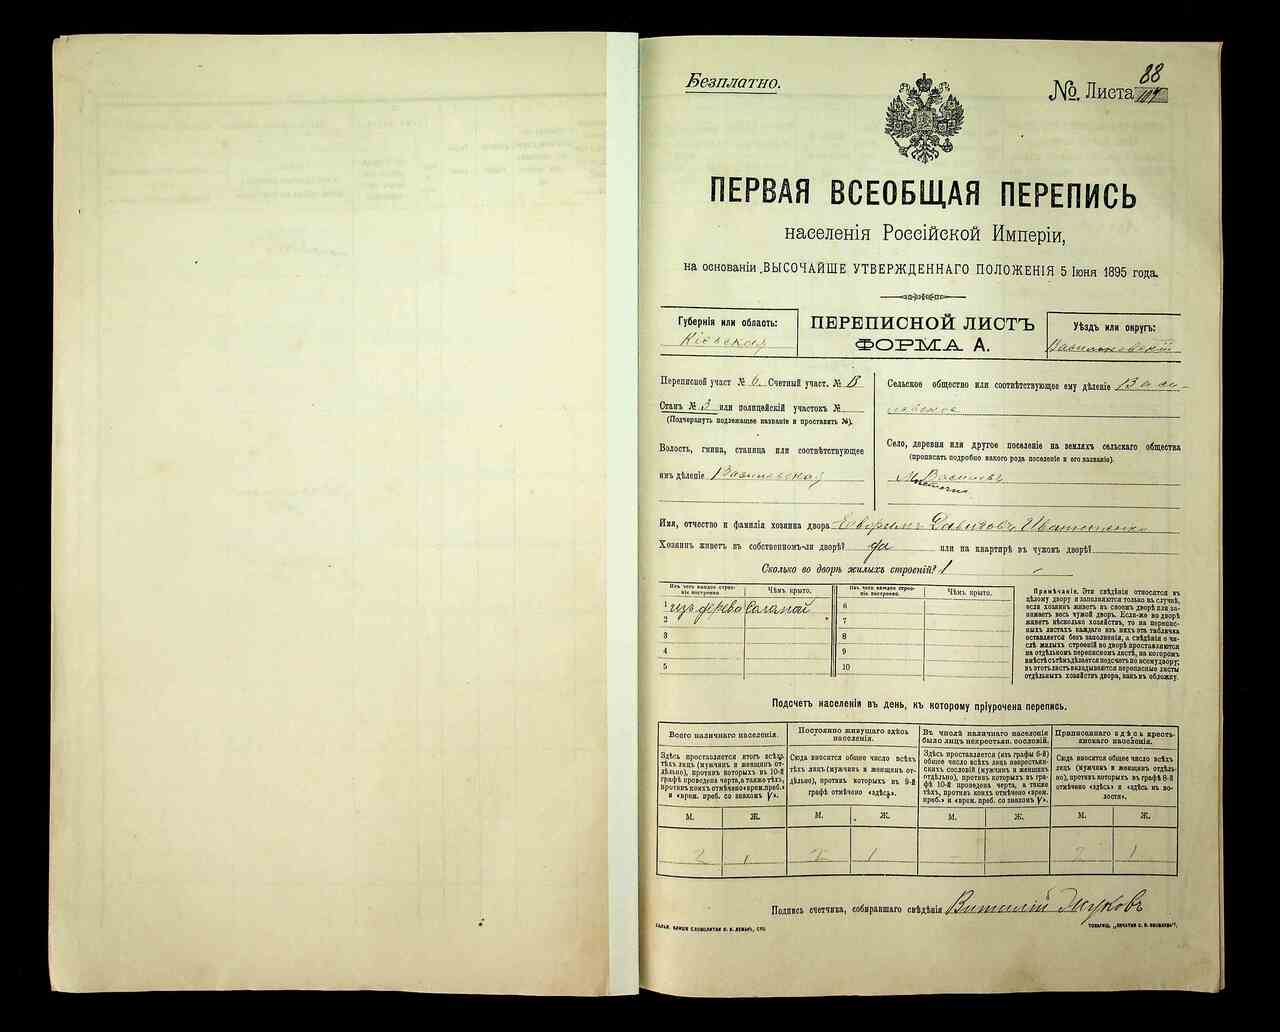 Безплатно.
88
№ Листа 104
ПЕРВАЯ ВСЕОБЩАЯ ПЕРЕПИСЬ
населенія Россійской Имперіи,
на основаніи ВЫСОЧАЙШЕ УТВЕРЖДЕННАГО ПОЛОЖЕНІЯ 5 Іюня 1895 года.
Губернія или область:
Кіевская
ПЕРЕПИСНОЙ ЛИСТЪ
ФОРМА А.
Уѣздъ или округъ:
Васильковскій
Переписной участ № 6. Счетный участ. № В
Станъ № 3 или полицейскій участокъ №
(Подчеркнуть подлежащее названіе и проставить №).
Волость, гмина, станица или соотвѣтствующее
имъ дѣленіе
Сельское общество или соотвѣтствующее ему дѣленіе
Село, деревня или другое поселеніе на земляхъ сельскаго общества
(прописать подробно какого рода поселеніе и его названіе).
М. Василевъ
Имя, отчество и фамилія хозяина двора Давидовъ
Хозяинъ живетъ въ собственномъ-ли дворѣ? да или на квартирѣ въ чужомъ дворѣ?
Сколько во дворѣ жилыхъ строеній? 1
Изъ чего каждое строе-
ніе построено.
Чѣмъ крыто.
1 изъ дерева Соломой
2
3
4
5
Изъ чего каждое строе-
ніе построено.
Чѣмъ крыто.
6
7
8
9
10
Примѣчаніе. Эти свѣдѣнія относятся къ
цѣлому двору и заполняются только въ случаѣ,
если хозяинъ живетъ въ своемъ дворѣ или за-
нимаетъ весь чужой дворъ. Если-же во дворѣ
живетъ нѣсколько хозяйствъ, то на перепис-
ныхъ листахъ каждаго изъ нихъ эта табличка
оставляется безъ заполненія, а свѣдѣнія о чи-
слѣ жилыхъ строеній во дворѣ проставляются
на отдѣльномъ переписномъ листѣ, на которомъ
вмѣстѣ съ тѣмъ дѣлается подсчетъ по всему двору;
въ этотъ листъ вкладываются переписные листы
отдѣльныхъ хозяйствъ двора, какъ въ обложку.
Подсчетъ населенія въ день, къ которому пріурочена перепись.
Всего наличнаго населенія.
Здѣсь проставляется итогъ всѣхъ
тѣхъ лицъ (мужчинъ и женщинъ от-
дѣльно), противъ которыхъ въ 10-й
графѣ проведена черта, а также тѣхъ,
противъ коихъ отмѣчено «врем. преб.»
и «врем. преб. со знакомъ V».
М. Ж.
2 1
Постоянно живущаго здѣсь
населенія.
Сюда вносится общее число всѣхъ
тѣхъ лицъ (мужчинъ и женщинъ от-
дѣльно), противъ которыхъ въ 9-й
графѣ отмѣчено «здѣсь».
М. Ж.
2 1
Въ числѣ наличнаго населенія
было лицъ некрестьян. сословій.
Здѣсь проставляется (изъ графы 6-й)
общее число всѣхъ лицъ некрестьян-
скихъ сословій (мужчинъ и женщинъ
отдѣльно), противъ которыхъ въ гра-
фѣ 10-й проведена черта, а также
тѣхъ, противъ коихъ отмѣчено «врем.
преб.» и «врем. преб. со знакомъ V».
М. Ж.
- -
Приписаннаго здѣсь кресть-
янскаго населенія.
Сюда вносится общее число всѣхъ
лицъ (мужчинъ и женщинъ отдѣль-
но), противъ которыхъ въ графѣ 8-й
отмѣчено «здѣсь» и «здѣсь въ во-
лости».
М. Ж.
2 1
Подпись счетчика, собиравшаго свѣдѣнія Виталій Жуковъ